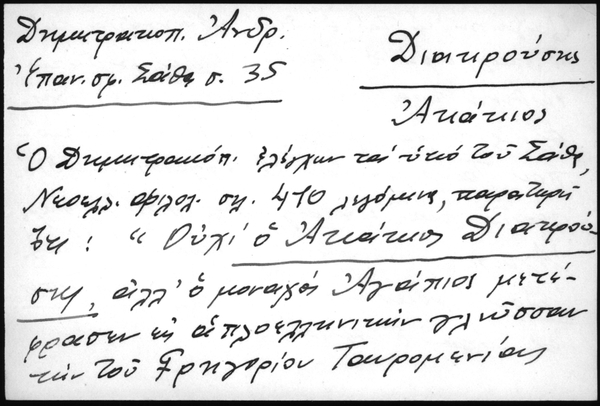 Δημητρακοπ. Ἀνδρ.
Ἐπαν. σφ. Σάθα σ. 35
Διακρούσης
Ἀκάκιος
Ὁ Δημητρακόπ. ἐλέγχων τὰ ὑπὸ τοῦ Σάθα,
Νεοελλ. φιλολ. σελ. 410 λεγόμενα, παρατηρεῖ
ὅτι : " Οὐχὶ ὁ Ἀκάκιος Διακρού-
σης, ἀλλ' ὁ μοναχὸς Ἀγάπιος μετέ-
φρασεν εἰς ἁπλοελληνικὴν γλῶσσαν
τὴν τοῦ Γρηγορίου Ταυρομενίας